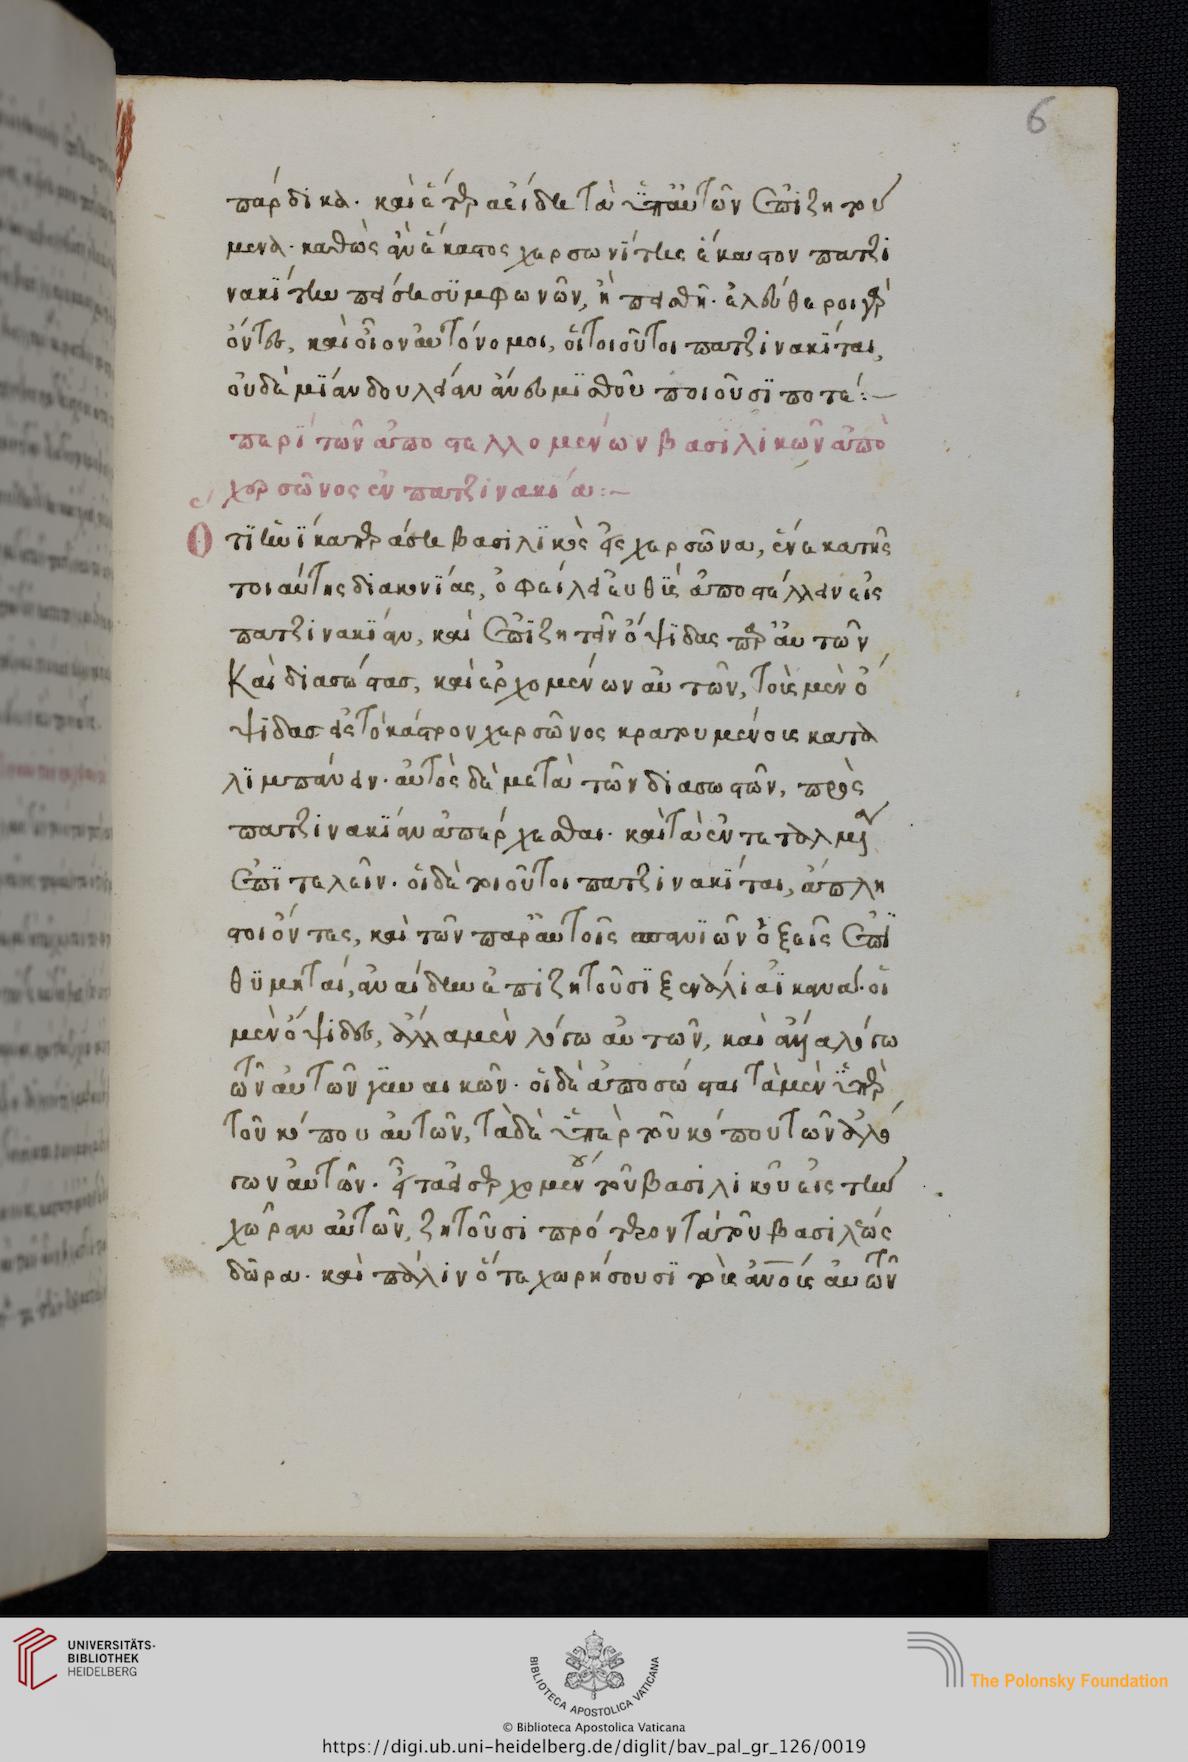 6
παρδικά. καὶ ἕτερα εἴδη τὰ ὑπ' αὐτῶν ἐπιζητού
μενα. καθὼς ἂν ἕκαστος χερσωνίτης ἕκαστον πατζι
νακίτην πείσει συμφωνῶν, ἢ πεισθῆ. ἐλεύθεροι γὰρ
ὄντες, καὶ οἷον αὐτόνομοι, οἱ τοιοῦτοι πατζινακῖται,
οὐδεμίαν δουλείαν ἄνευ μισθοῦ ποιοῦσί ποτε:—
περὶ τῶν ἀποστελλομένων βασιλικῶν ἀπὸ
χερσῶνος ἐν πατζινακία:—
Ὅτι ἡνίκα περάσει βασιλικὸς εἰς χερσῶνα, ἕνεκα τῆς
τοιαύτης διακονίας, ὀφείλει εὐθὺς ἀποστέλλειν εἰς
πατζινακίαν, καὶ ἐπιζητεῖν ὄψιδας παρ' αὐτῶν
καὶ διασώστας, καὶ ἐρχομένων αὐτῶν, τοὺς μὲν ὄ
ψιδας εἰς τὸ κάστρον χερσῶνος κρατουμένους κατα
λιμπάνειν. αὐτὸς δὲ μετὰ τῶν διασωστῶν, πρὸς
πατζινακίαν ἀπέρχεσθαι. καὶ τὰ ἐντεταλμένα
ἐπιτελεῖν. οἱ δὲ τοιοῦτοι πατζινακῖται, ἄπλη
στοι ὄντες, καὶ τῶν παρ' αὐτοῖς σπανίων ὀξεῖς ἐπι
θυμηταί, ἀναίδην ἐπιζητοῦσι ξενάλια ἱκανά. οἱ
μὲν ὄψιδες, ἄλλα μὲν λόγω αὐτῶν, καὶ ἄλλα λόγω
τῶν αὐτῶν γυναικῶν. οἱ δὲ ἀποσώσται τὰ μὲν ὑπὲρ
τοῦ κόπου αὐτῶν, τὰ δὲ ὑπὲρ τοῦ κόπου τῶν ἀλό
γων αὐτῶν. εἶτα εἰσερχομένου τοῦ βασιλικοῦ εἰς τὴν
χώραν αὐτῶν, ζητοῦσι πρότερον τὰ τοῦ βασιλέως
δῶρα. καὶ πάλιν ὅτε χωρήσουσι τοὺς ἀνους αὐτῶν
UNIVERSITÄTS-
BIBLIOTHEK
HEIDELBERG
BIBLIOTECA APOSTOLICA VATICANA
The Polonsky Foundation
© Biblioteca Apostolica Vaticana
https://digi.ub.uni-heidelberg.de/diglit/bav_pal_gr_126/0019